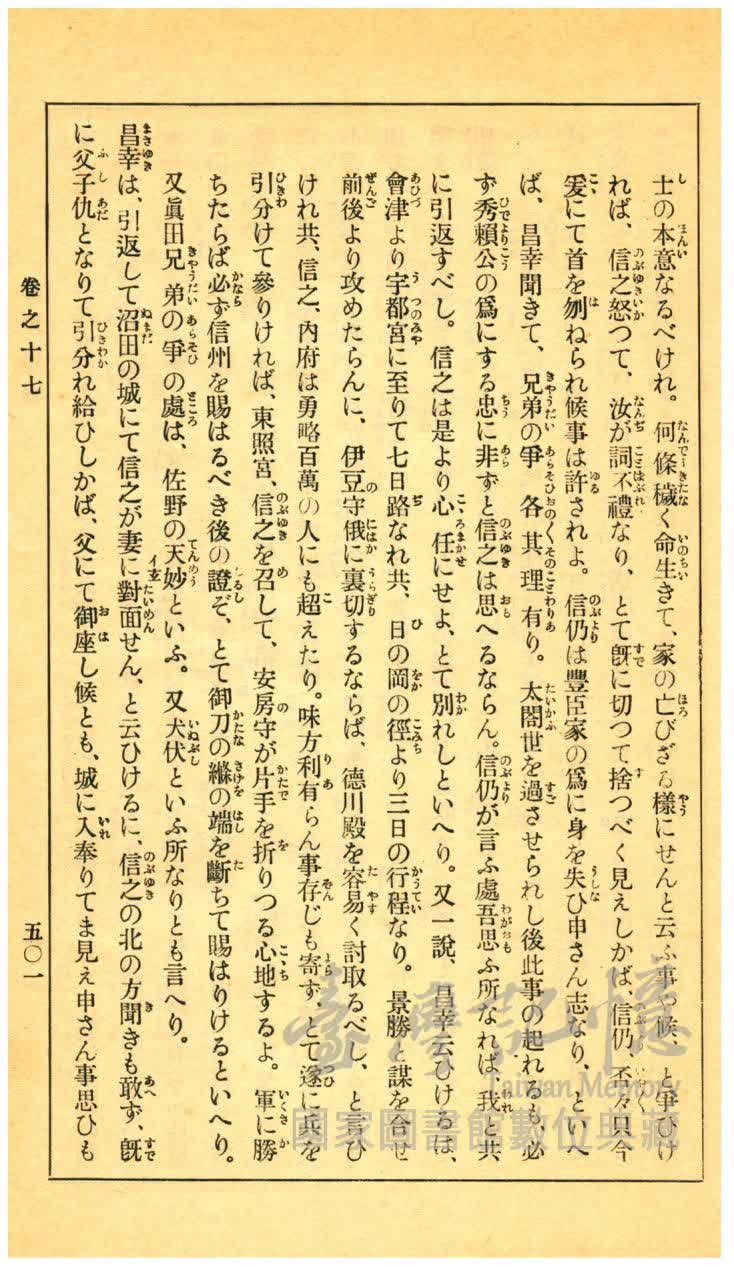 士の本意なるべけれ。何條穢く命生きて、家の亡びざる樣にせんと云ふ事や候、と爭ひけ
れば、信之怒つて、汝が詞不禮なり、とて既に切つて捨つべく見えしかば、信仍、否々只今
爰にて首を刎ねられ候事は許されよ。信仍は豐臣家の爲に身を失ひ申さん志なり、といへ
ば、昌幸聞きて、兄弟の爭各其理有り。太閤世を過させられし後此事の起れるも、必
ず秀賴公の爲にする忠に非ずと信之は思へるならん。信仍が言ふ處吾思ふ所なれば、我と共
に引返すべし。信之は是より心任にせよ、とて別れしといへり。又一說、昌幸云ひけるは、
會津より宇都宮に至りて七日路なれ共、日の岡の徑より三日の行程なり。景勝と謀を合せ
前後より攻めたらんに、伊豆守俄に裏切するならば、德川殿を容易く討取るべし、と言ひ
けれ共、信之、內府は勇略百萬の人にも超えたり。味方利有らん事存じも寄ず、とて遂に兵を
引分けて參りければ、東照宮、信之を召して、安房守が片手を折りつる心地するよ。軍に勝
ちたらば必ず信州を賜はるべき後の證ぞ、とて御刀の縧の端を斷ちて賜はりけるといへり。
又眞田兄弟の爭の處は、佐野の天妙といふ。又犬伏といふ所なりとも言へり。
昌幸は、引返して沼田の城にて信之が妻に對面せん、と云ひけるに、信之の北の方聞きも敢ず、既
に父子仇となりて引分れ給ひしかば、父にて御座し候とも、城に入奉りてま見え申さん事思ひも
卷之十七
五〇一
臺灣記憶
Taiwan Memory
國家圖書館數位典藏